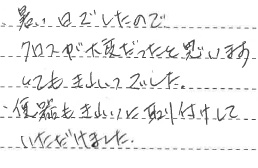 ・暑い日でしたので
クロスが大変だったと思います
とてもきれいでした。
・便器もきれいに取り付けして
いただけました.